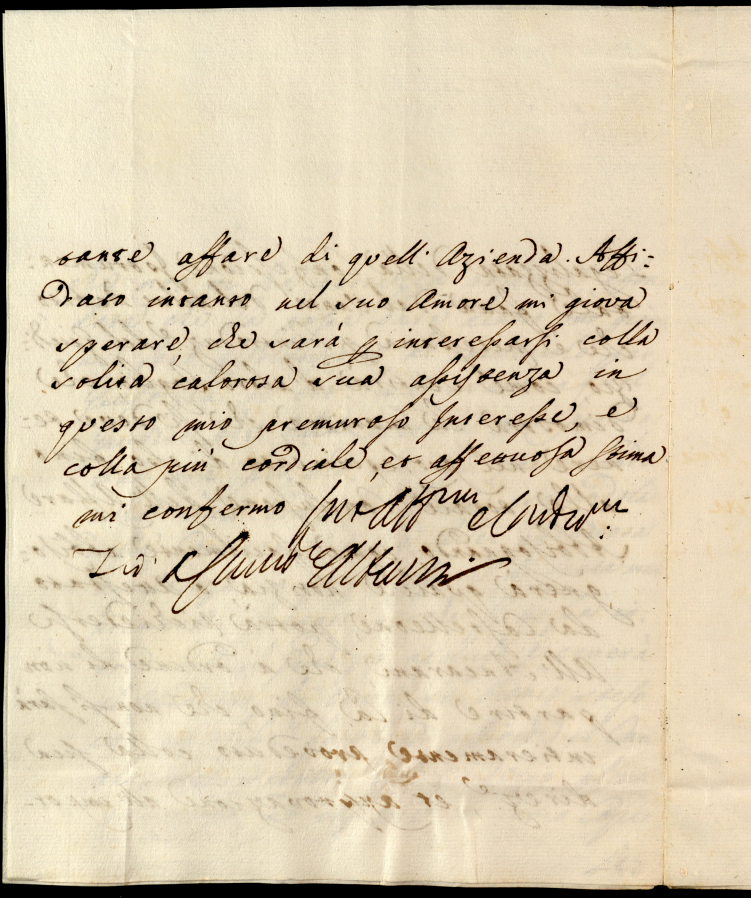 tante affare di quell' Azienda. Affi=
dato intanto nel suo Amore mi giova
sperare, che sarà p interessarsi colla
solita calorosa sua assistenza in
questo mio premuroso Interesse, e
colla più cordiale, et affettuosa stima
mi confermo
Zio Albani